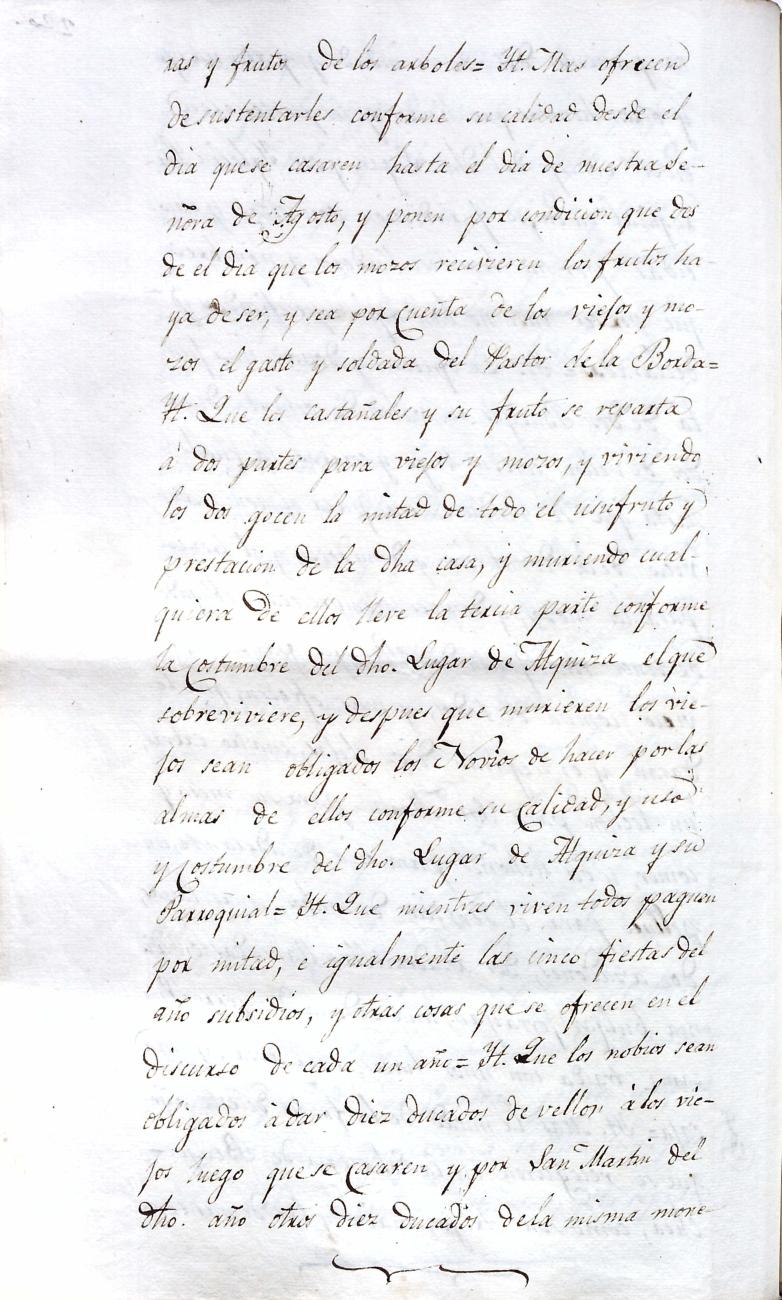 ras y frutos de los arboles= Yt. Mas ofrecen
de sustentarles conforme su calidad desde el
dia que se casaren hasta el dia de nuestra Se-
ñora de Agosto, y ponen por condicion que des
de el dia que los mozos recivieren los frutos ha-
ya de ser, y sea por cuenta de los viejos y mo-
zos el gasto y soldada del Pastor de la Borda=
Yt. Que los castañales y su fruto se reparta
à dos partes para viejos y mozos, y viviendo
los dos gocen la mitad de todo el usufruto y
prestacion de la dha casa, y muriendo cual-
quiera de ellos lleve la tercia parte conforme
la costumbre del dho. Lugar de Alquiza el que
sobreviviere, y despues que murieren los vie-
jos sean obligados los Novios de hacer por las
almas de ellos conforme su calidad, y uso
y costumbre del dho. Lugar de Alquiza y su
Parroquial= Yt. Que mientras viven todos paguen
por mitad, e igualmente las cinco fiestas del
año subsidios, y otras cosas que se ofrecen en el
discurso de cada un año= Yt. Que los nobios sean
obligados à dar diez ducados de vellon à los vie-
jos luego que se casaren y por San Martin del
dho. año otros diez ducados de la misma mone